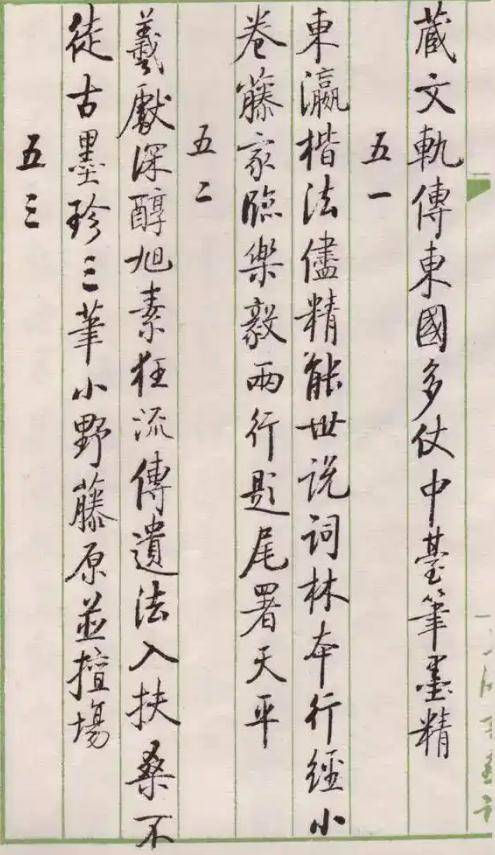 藏文軌傳東國多仗中臺筆墨精
五一
東瀛楷法儘精能世說詞林本行經小
卷藤家臨樂毅兩行題尾署天平
五二
羲獻深醇旭素狂流傳遺法入扶桑不
徒古墨珍三筆小野藤原並擅場
五三